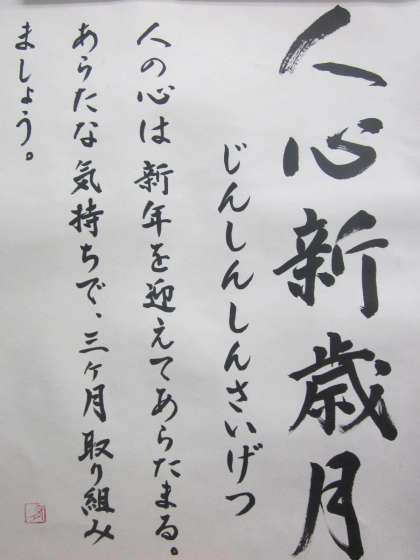 人心新歳月
じんしんしんさいげつ
人の心は新年を迎えてあらたまる。
あらたな気持ちで、三ヶ月取り組み
ましょう。